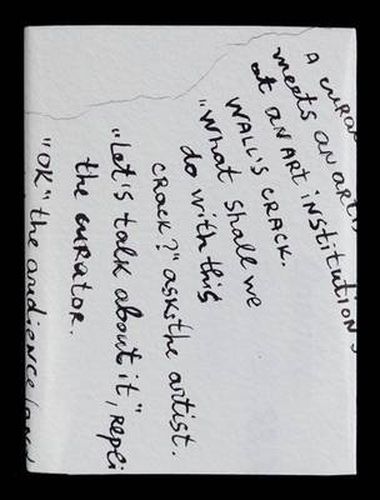 A cura
meets an artis
at an ART institution
WALL'S CRACK.
"What shall we
do with this
crack?" asks the artist.
"Let's talk about it", repli
the curator.
"OK" the audience